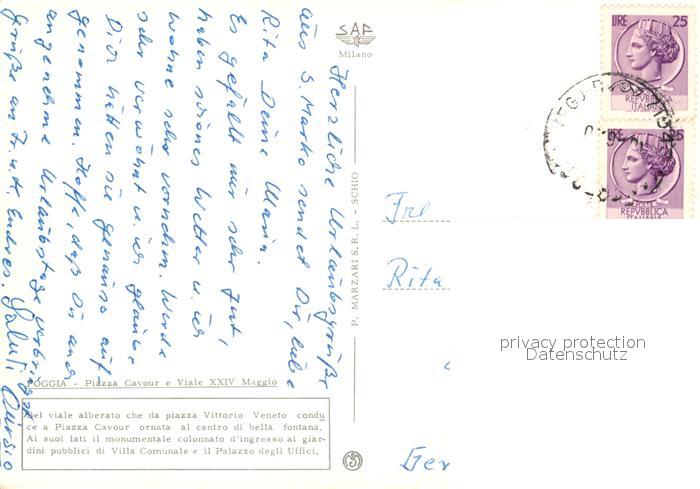 Herzliche Urlaubsgrüße
aus S. Marko sendet Dir, liebe
Rita Deine Maria.
Es gefällt mir sehr gut,
haben schönes Wetter u. ich
wohne sehr vornehm. Werde
sehr verwöhnt u. ich glaube
Dich hätten sie genauso auf-
genommen. Hoffe, daß Du auch
angenehme Urlaubstage verbringst
Grüße an Fr. u. H. Endres. Saluti
SAF
Milano
P. MARZARI S.R.L. - SCHIO
LIRE 25
REPVBBLICA
ITALIANA
LIRE 25
REPVBBLICA
ITALIANA
Frl
Rita
Ger
privacy protection
Datenschutz
FOGGIA - Piazza Cavour e Viale XXIV Maggio
Bel viale alberato che da piazza Vittorio Veneto condu
ce a Piazza Cavour ornata al centro di bella fontana.
Ai suoi lati il monumentale colonnato d'ingresso ai giar-
dini pubblici di Villa Comunale e il Palazzo degli Uffici.